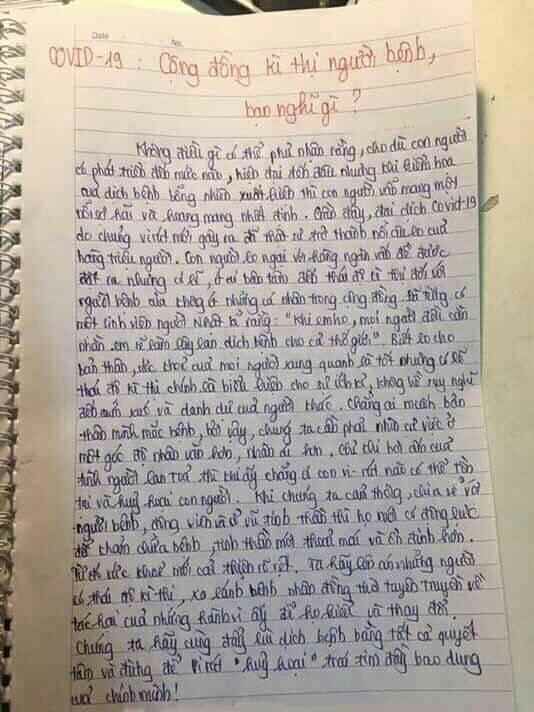 Date No.
COVID-19 : Cộng đồng kì thị người bệnh,
bạn nghĩ gì ?
Không điều gì có thể phủ nhận rằng, cho dù con người
có phát triển đến mức nào, hiện đại đến đâu nhưng khi hiểm họa
của dịch bệnh bỗng nhiên xuất hiện thì con người vẫn mang một
nỗi sợ hãi và hoang mang nhất định. Gần đây, đại dịch Covid-19
do chủng virut mới gây ra đã thật sự trở thành nỗi lo của
hàng triệu người. Con người lo ngại với hàng ngàn vấn đề được
đặt ra nhưng có lẽ, ít ai bận tâm đến thái độ kì thị đối với
người bệnh của những cá nhân trong cộng đồng. Đã từng có
một sinh viên người Nhật bảo rằng: "Khi em ho, mọi người đều cẩn
thận, em sẽ làm lây lan dịch bệnh cho cả thế giới". Biết lo cho
bản thân, sức khoẻ của mọi người xung quanh là tốt nhưng có lẽ
thái độ kì thị chính là biểu hiện cho sự ích kỉ, không hề suy nghĩ
đến cảm xúc và danh dự của người khác. Chẳng ai muốn bản
thân mình mắc bệnh, bởi vậy, chúng ta cần phải nhìn sự việc ở
một góc độ nhân văn hơn, nhân ái hơn. Chỉ khi hơi ấm của
tình người lan toả thì khi ấy chẳng có con vi-rút nào có thể tồn
tại và huỷ hoại con người. Khi chúng ta cảm thông, chia sẻ với
người bệnh, động viên về tinh thần thì họ mới có động lực
để chữa bệnh, tinh thần mới thoải mái và ổn định hơn.
Từ đó sức khoẻ mới cải thiện rõ rệt. Ta hãy lên án những người
có thái độ kì thị, xa lánh bệnh nhân đồng thời tuyên truyền về
tác hại của những hành vi ấy để họ hiểu và thay đổi.
Chúng ta hãy cùng đẩy lùi dịch bệnh bằng tất cả quyết
tâm và đừng để vi rút "huỷ hoại" trái tim đầy bao dung
của chính mình!